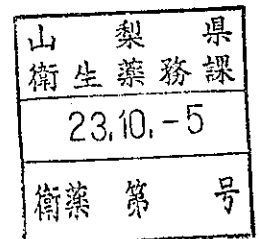 山梨県
衛生薬務課
23.10.-5
衛薬 第 号